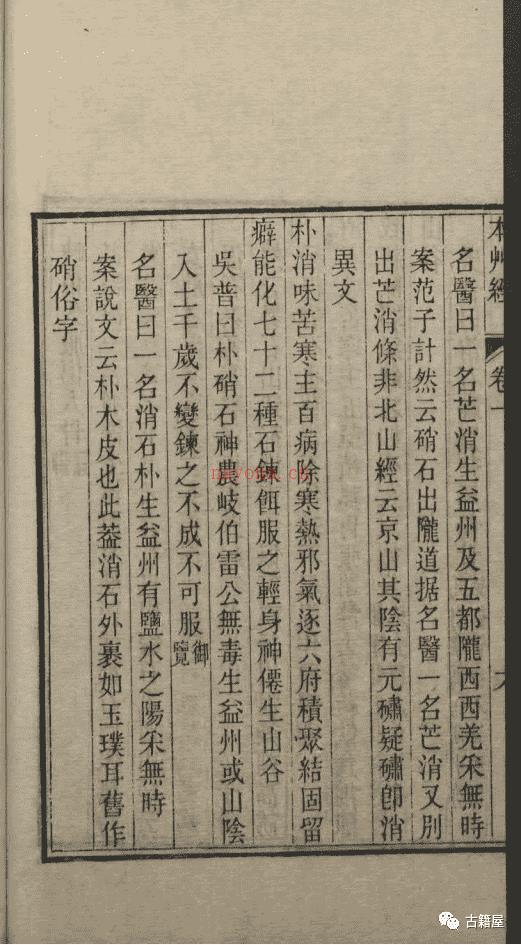 本艸經 卷一
名醫曰一名芒消生益州及五都隴西西羌采無時
案范子計然云硝石出隴道据名醫一名芒消又别
出芒消條非北山經云京山其陰有元礵疑礵卽消
異文
朴消味苦寒主百病除寒熱邪氣逐六府積聚結固留
癖能化七十二種石鍊餌服之輕身神僊生山谷
吳普曰朴硝石神農岐伯雷公無毒生益州或山陰
入土千歲不變鍊之不成不可服御覽
名醫曰一名消石朴生益州有鹽水之陽采無時
案說文云朴木皮也此葢消石外裹如玉璞耳舊作
硝俗字
古籍屋